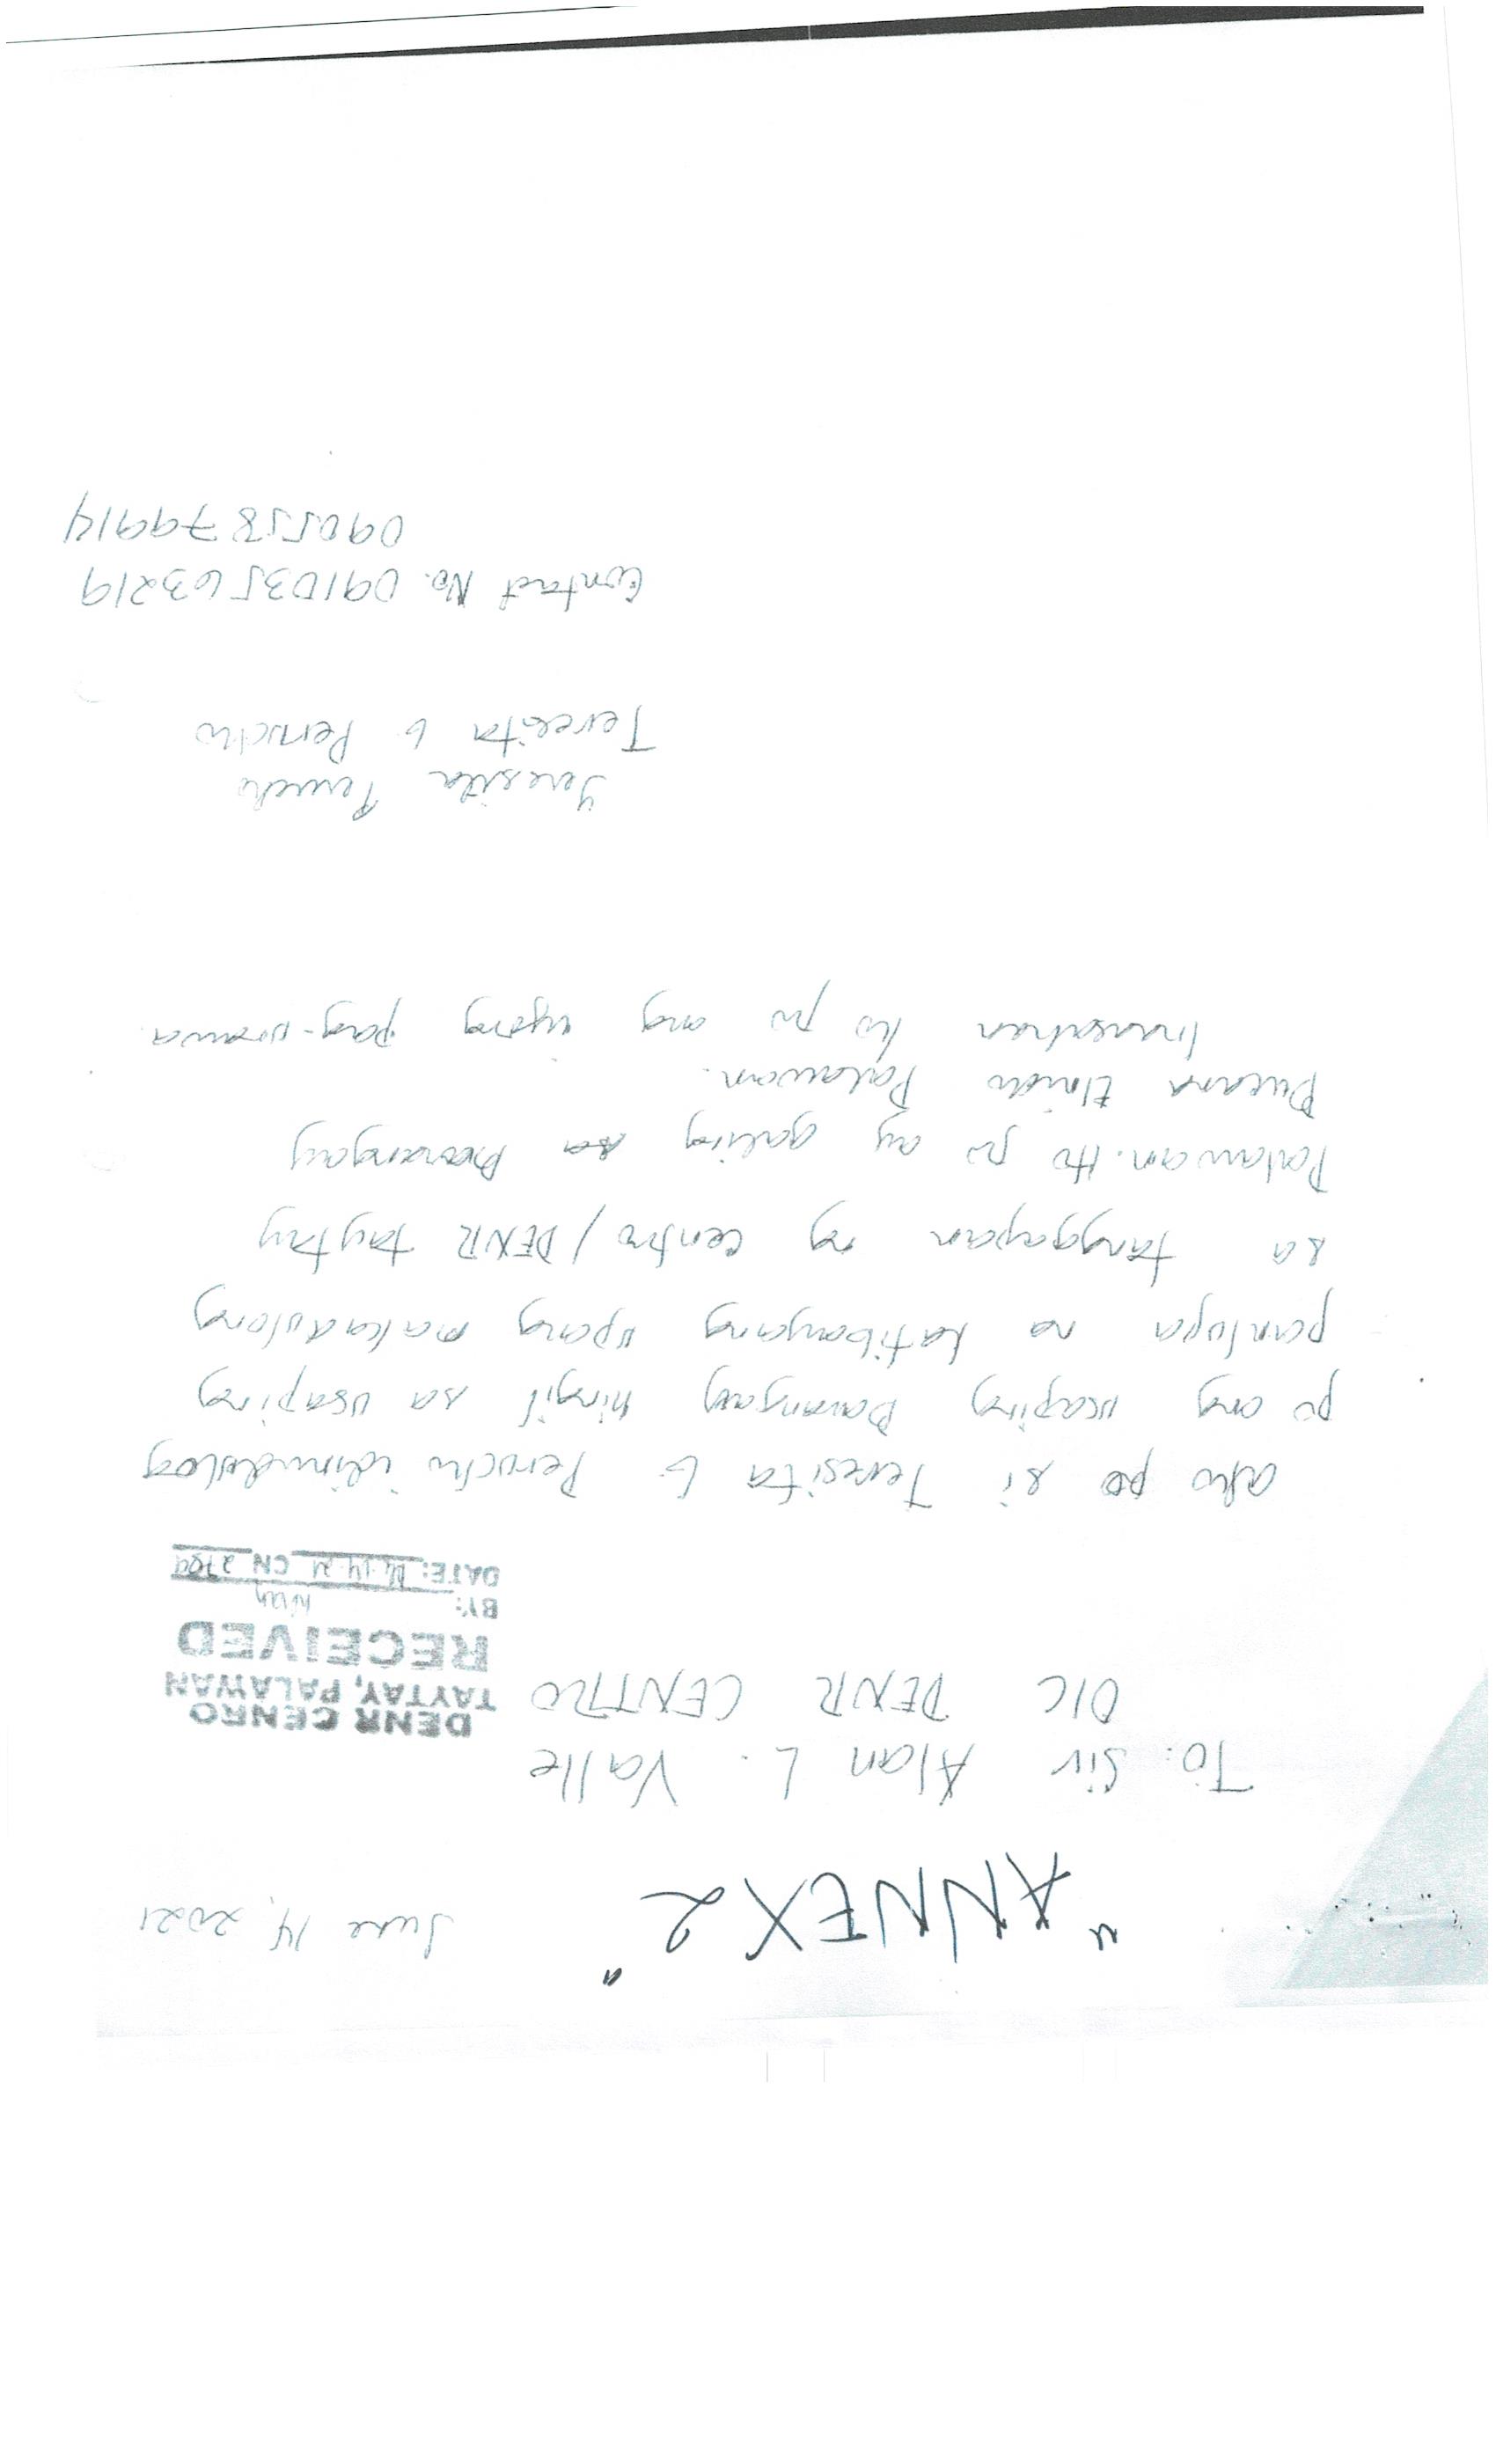 "ANNEX 2"
June 14, 2021
To: Sir Alan L. Valle
OIC DENR CENTRO
DENR CENRO
TAYTAY, PALAWAN
RECEIVED
BY:
DATE: 14-21 CN
ako po si Teresita G idinudulog
po ang usaping Barangay hingil sa usaping
panlupa na katibayang upang makadulong
sa tanggapan ng centro/DENR taytay
Palawan. Ito po ay galing sa barangay
Palawan.
ko po ang iyong pag-unawa.
Teresita
Teresita G
Contact No. 09103563219
09055879914